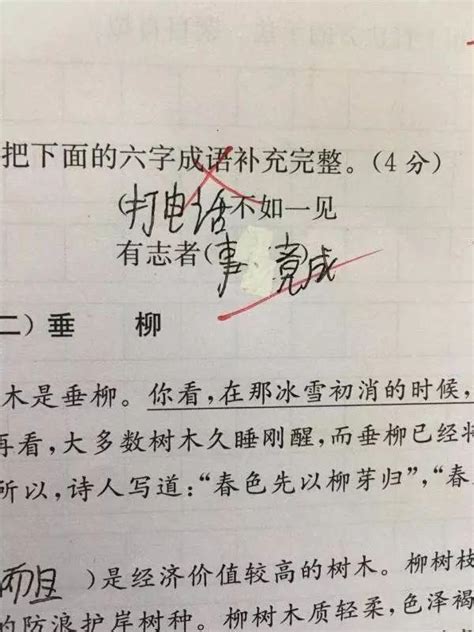 把下面的六字成语补充完整。(4分)
(打电话不如一见
有志者(事 竟成
二)垂 柳
木是垂柳。你看,在那冰雪初消的时候,
再看,大多数树木久睡刚醒,而垂柳已经将
所以,诗人写道:“春色先以柳芽归”,“春
而且 )是经济价值较高的树木。柳树枝
的防浪护岸树种。柳树木质轻柔,色泽褐